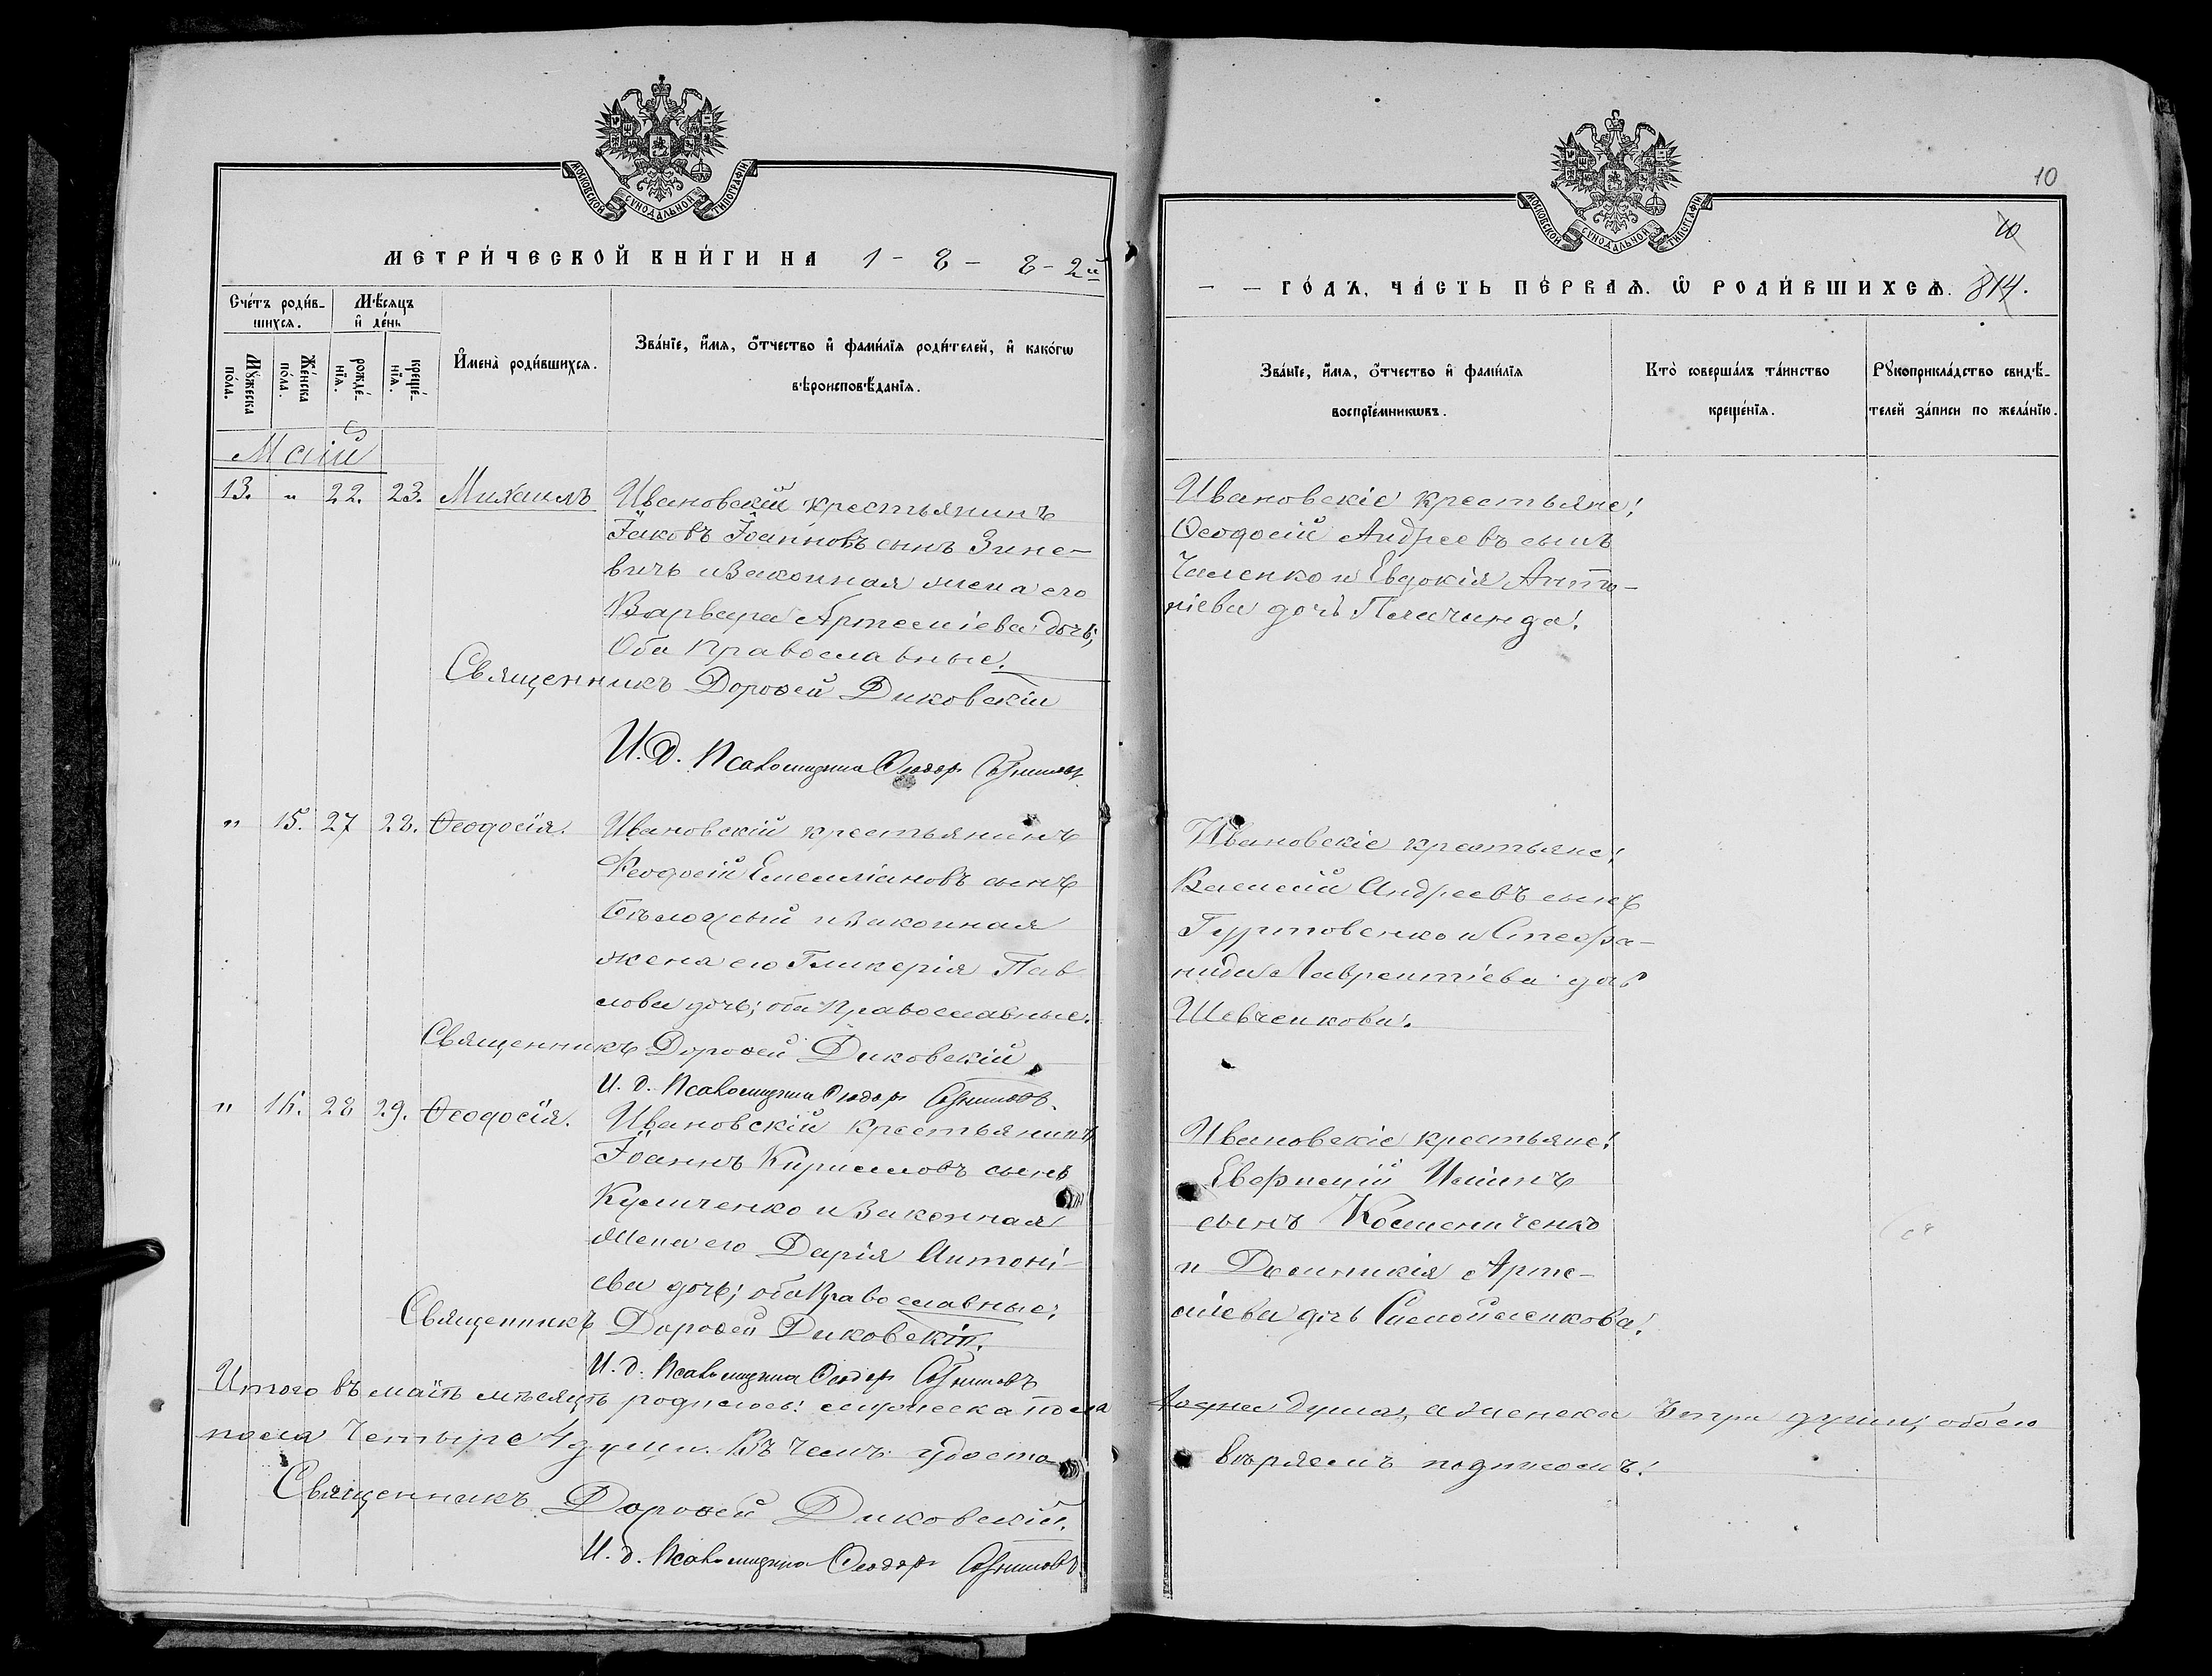 МОСКОВСКОЙ СУНОДАЛЬНОЙ ТИПОГРАФІИ
МЕТРИ́ЧЕСКОЙ КНИ́ГИ НА 1-8-8-2й
Сче́тъ роди́в-
шихсѧ.
Мѣ́сѧцъ
и҆ де́нь
Мꙋ́жеска
по́ла.
Же́нска
по́ла.
рожде́-
нїѧ.
креще́-
нїѧ.
И҆мена̀ роди́вшихсѧ.
Зва́нїе, и҆́мѧ, ѻ҆́тчество и҆ фамі́лїѧ роди́телей, и҆ како́гѡ
вѣроисповѣ́данїѧ.
Маій
13. " 22. 23. Михаилъ
Ивановскій крестьянинъ
Іаковъ Іоанновъ сынъ Зине-
вичъ и законная жена его
Варвара Артеміева дочь;
Оба Православные.
Священникъ Дороѳей Диковскій
И. д. Псаломщика Ѳеодоръ
" 15. 27 28. Ѳеодосія.
Ивановскій крестьянинъ
Ѳеодосій Емеліановъ сынъ
и законная
жена его Гликерія Пав
лова дочь; оба Православные.
Священникъ Дороѳей Диковскій
И. д. Псаломщика Ѳеодоръ
" 16. 28 29. Ѳеодосія.
Ивановскій крестьянинъ
Іоаннъ Кирилловъ сынъ
и законная
жена его Дарія Антоні-
ева дочь; оба Православные;
Священникъ Дороѳей Диковскій.
И. д. Псаломщика Ѳеодоръ
Итого въ маіѣ мѣсяцѣ родилось: мужеска пола
пола Четыре 4 души. Въ чемъ удосто-
Священникъ Дороѳей Диковскій.
И. д. Псаломщика Ѳеодоръ
10
МОСКОВСКОЙ СУНОДАЛЬНОЙ ТИПОГРАФІИ
10
- - ГО́ДЪ, ЧА́СТЬ ПЕ́РВАѦ. Ѡ҆ РОДИ́ВШИХСѦ. 814.
Зва́нїе, и҆́мѧ, ѻ҆́тчество и҆ фамі́лїѧ
воспрїе́мникѡвъ.
Кто̀ соверша́лъ та́инство
креще́нїѧ.
Рꙋкоприкла́дство свидѣ́-
телей за́писи по жела́нїю.
Ивановскіе крестьяне:
Ѳеодосій Андреевъ сынъ
Чаленко и Евдокія Анто-
ніева дочь Плачинда.
Ивановскіе крестьяне:
Андреевъ сынъ
Гуртовенко и Стефа-
нида Лаврентіева дочь
Шевченкова.
Ивановскіе крестьяне:
сынъ
и Домникія Арте-
міева дочь Самойленкова.
Одна душа, а женска три души; обоего
вѣряемъ подписомъ: